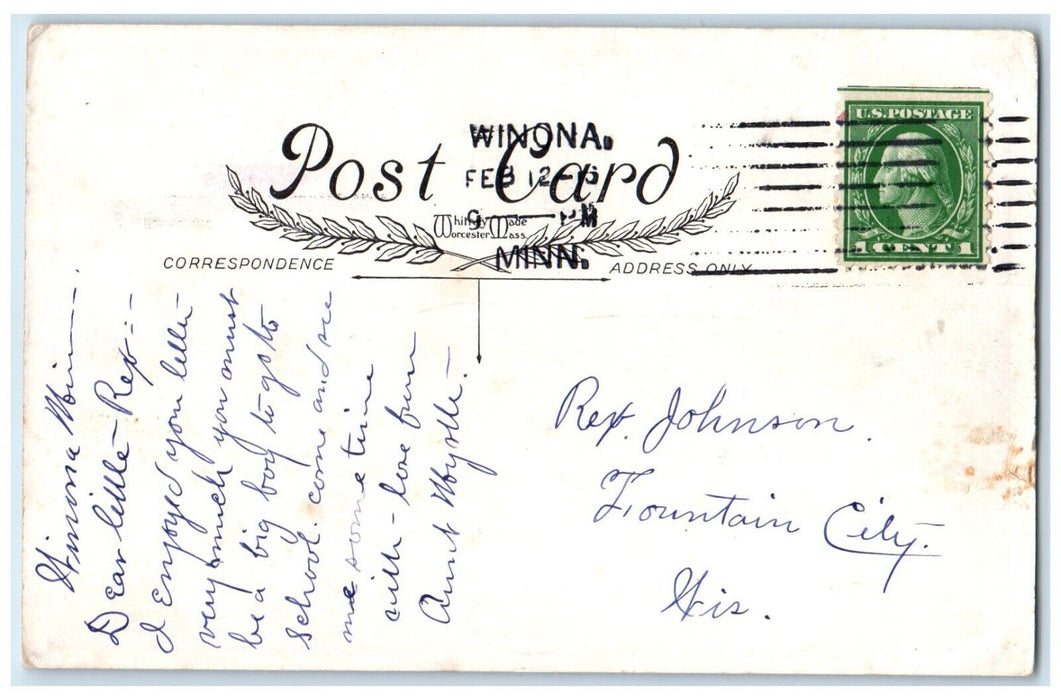 Post Card
WINONA.
FEB 12
PM
MINN.
Whitney Made
Worcester Mass.
U.S. POSTAGE
1 CENT 1
CORRESPONDENCE
ADDRESS ONLY
Winona Min
Dear little Rex:-
I enjoyed your letter
very much you must
be a big boy to go to
school. come and see
me some time
with love from
Aunt Myrtle.
Rex. Johnson.
Fountain City.
Wis.